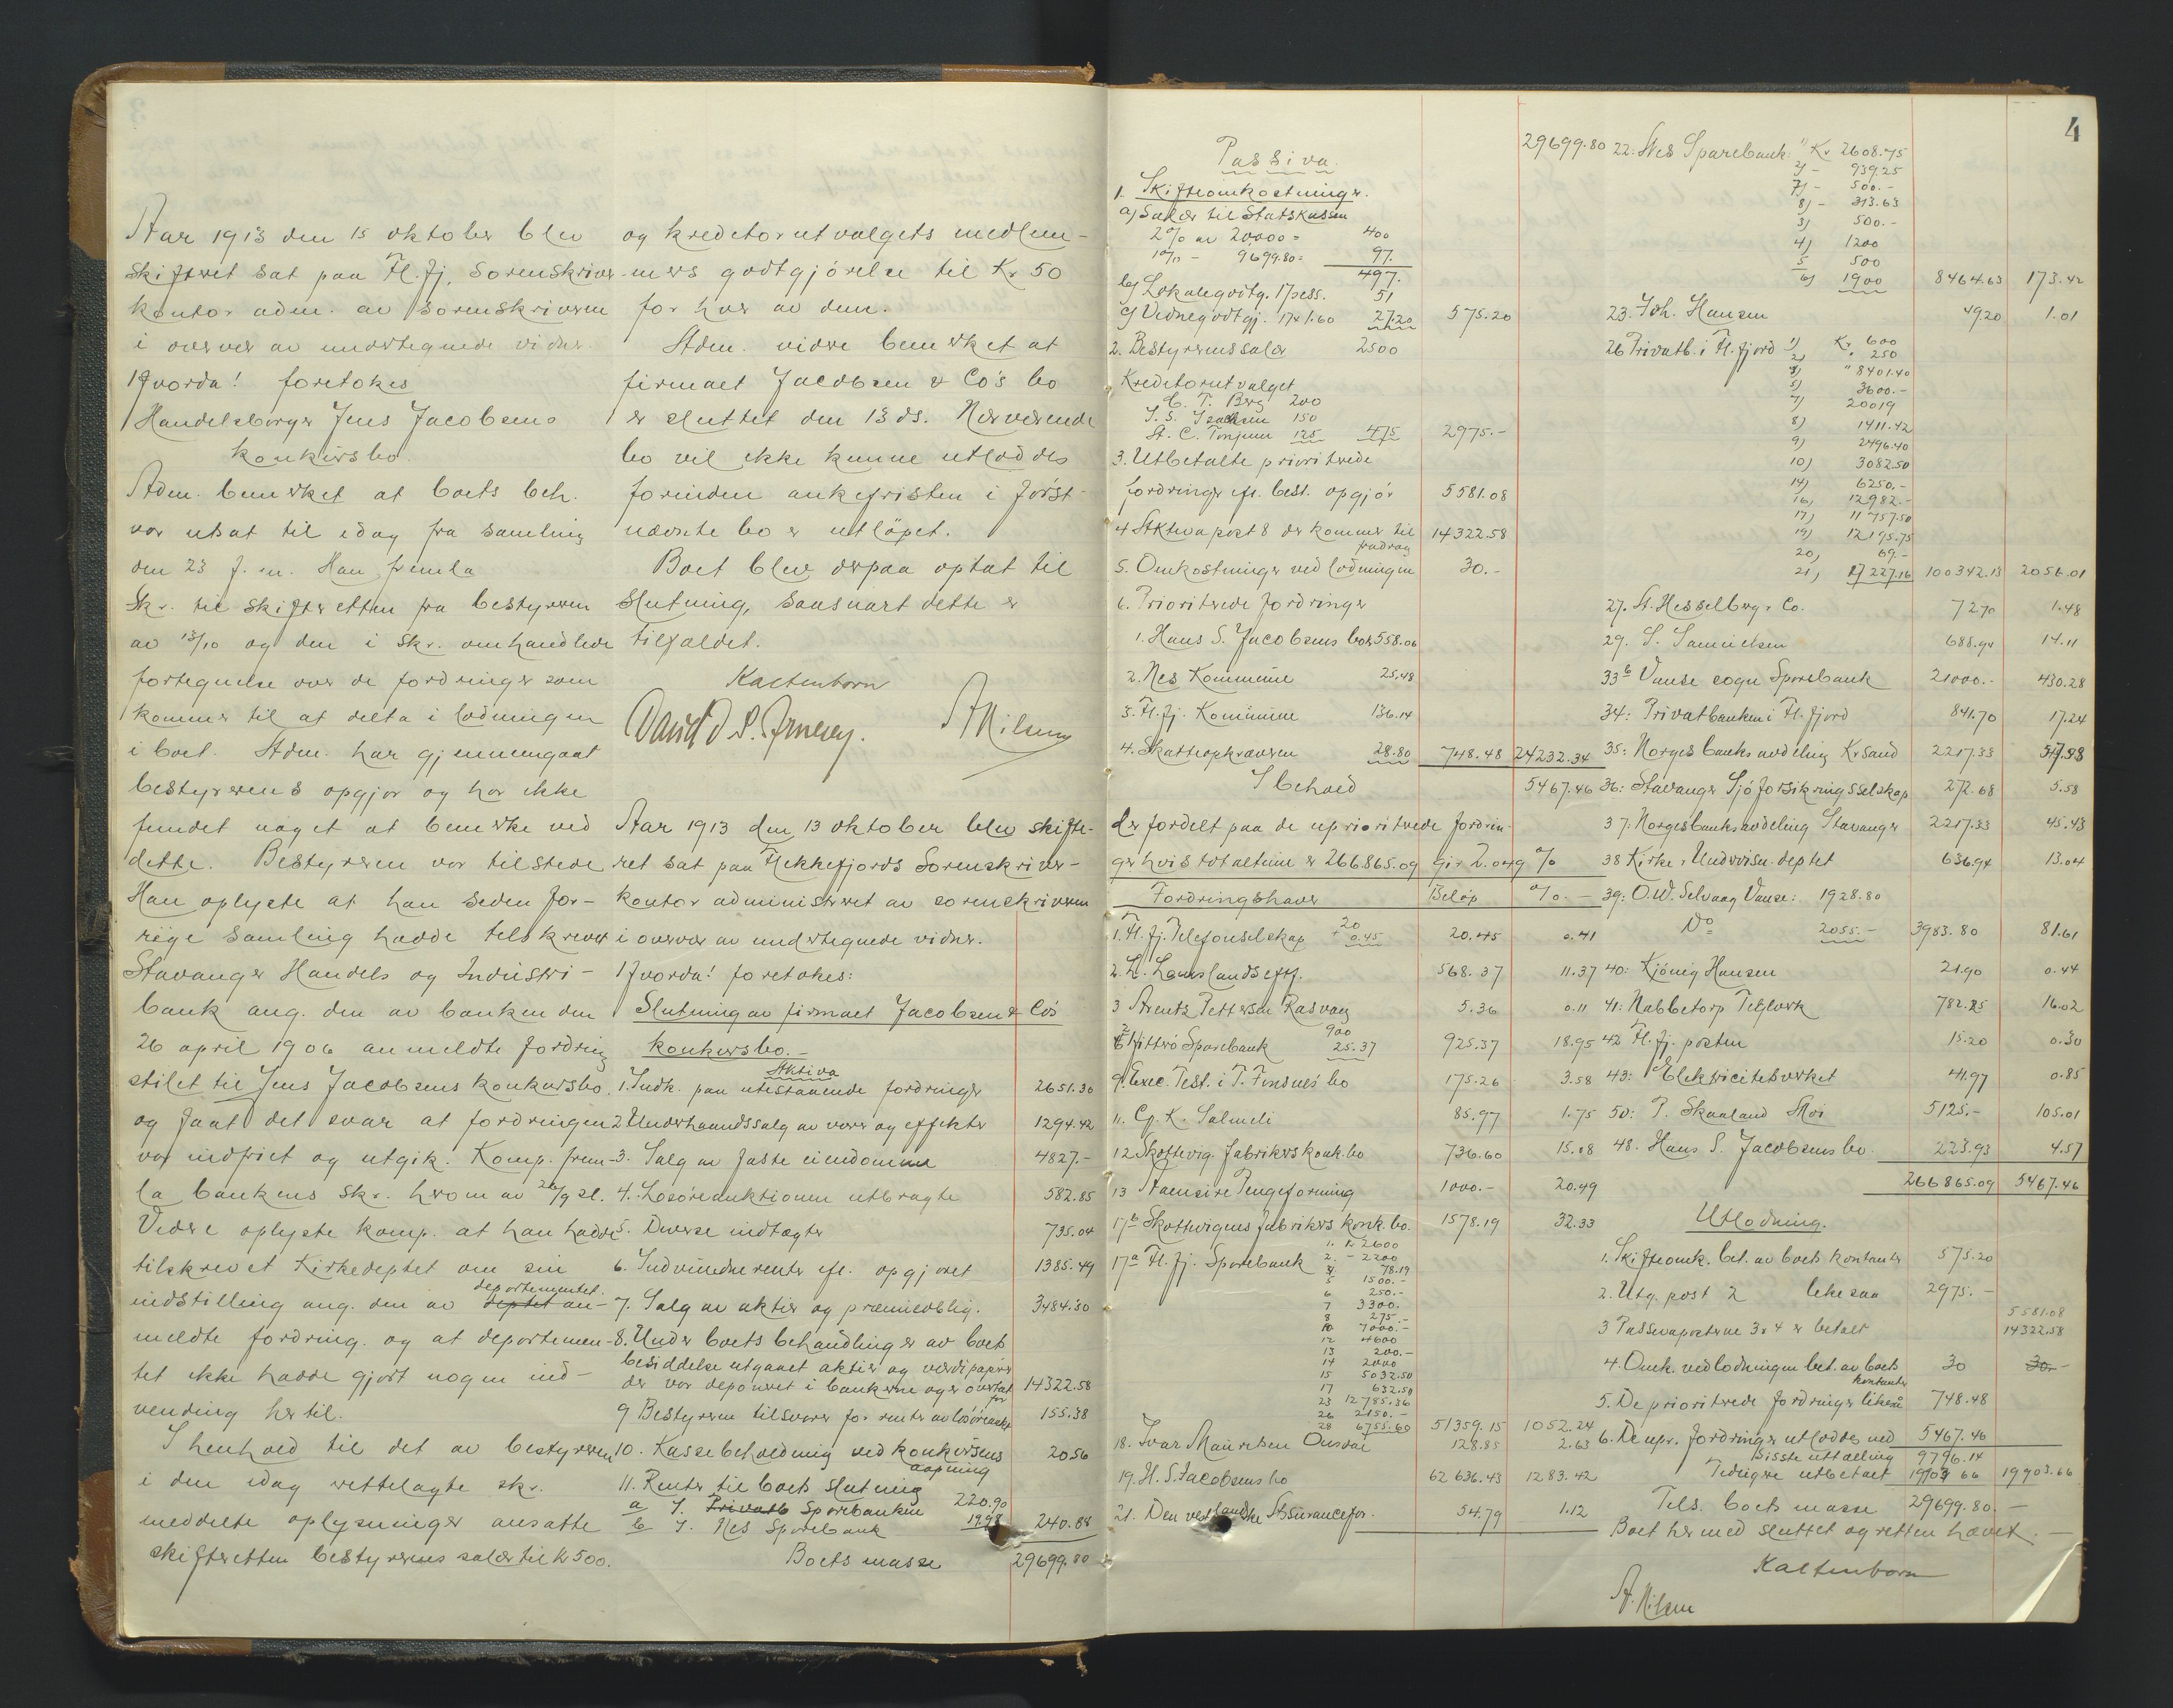 Aar 1913 den 15 oktober blev
skifteret sat paa Fl.fj. Sorenskriver-
kontor adm. av sorenskriveren
i overvær av undertegnede vidner.
Hvorda! foretokes
Handelsborger Jens Jacobsens
konkursbo.
Adm. bemerket at boets beh.
var utsat til idag fra samling
den 23 f. m. Han fremla
Skr. til skifteretten fra bestyreren
av 13/10 og den i skr. omhandlede
fortegnelse over de fordringer som
kommer til at delta i lodningen
i boet. Adm. har gjennemgaat
bestyrerens opgjør og har ikke
fundet noget at bemerke ved
dette. Bestyreren var tilstede
Han oplyste at han siden for-
rige samling hadde tilskrevet
Stavanger Handels og Industri-
bank ang. den av banken den
26 april 1906 anmeldte fordring
stilet til Jens Jacobsens konkursbo.
og faat det svar at fordringen
var indfriet og utgik. Komp. frem-
la bankens skr. herom av 26/9 sl.
Videre oplyste komp. at han hadde
tilskrevet Kirkedeptet om sin
indstilling ang. den av deptet departementet an-
meldte fordring. og at departemen-
tet ikke hadde gjort nogen ind-
vending hertil.
I henhold til det av bestyreren
i den idag rettelagte skr.
meddelte oplysninger ansatte
skifteretten bestyrerens salær til Kr 500.
og kreditorutvalgets medlem-
mers godtgjørelse til Kr 50
for hver av dem.
Adm. videre bemerket at
firmaet Jacobsen & Co's bo
er sluttet den 13 ds. Nærværende
bo vil ikke kunne utloddes
forinden ankefristen i først-
nævnte bo er utløpet.
Boet blev derpaa optat til
Slutning, saasnart dette er
tilfaldet.
Kaltenborn
David S. A. Nilsen
Aar 1913 den 13 oktober blev skifte-
ret sat paa Flekkefjords Sorenskriver-
kontor administreret av sorenskriveren
i overvær av undertegnede vidner.
Hvorda! foretokes:
Slutning av firmaet Jacobsen & Co's
konkursbo.-
Aktiva
1. Indk. paa utestaaende fordringer 2651.30
2. Underhaandssalg av varer og effekter 1294.42
3. Salg av faste eiendommer 4827.-
4. Løsøreauktionen utbragte 582.85
5. Diverse indtægter 735.04
6. Indvundne renter efl. opgjøret 1385.49
7. Salg av aktier og præmieoblig. 3484.30
8. Under boets behandling er av boets
besiddelse utgaaet aktier og værdipapirer
der var deponeret i bankerne og er overtat for 14322.58
9 Bestyreren tilsvarer for renter av løsøreauk 155.38
10. Kassebeholdning ved konkursens aapning 20.56
11. Renter til boets slutning
a I. Privatb Sparebanken 220.90
b I. Nes Sparebank 19.98 240.88
Boets masse 29699.80
4
Passiva. 29699.80
1. Skifteomkostninger.
a) Salær til Statskassen
2% av 20000 = 400
1% - 9699.80 = 97.
497.
b) Lokalegodtg. 17 sess. 51
c) Vidnegodtgj. 17 x 1.60 27.20 575.20
2. Bestyrerens salær 2500
Kreditorutvalget
C. T. Berg 200
J. S. Isaksen 150
St. C. Tonjum 125 475 2975.-
3. Utbetalte prioriterede
fordringer efl. best. opgjør 5581.08
4 Aktiva post 8 der kommer til fradrag 14322.58
5. Omkostninger ved lodningen 30.-
6. Prioriterede fordringer
1. Hans S. Jacobsens bo 558.06
2. Nes Kommune 25.48
3. Fl.fj. Kommune 136.14
4. Skatteopkræveren 28.80 748.48 24232.34
I behold 5467.46
der fordelt paa de uprioriterede fordrin-
ger hvis totalsum er 266.865.09 gir 2.049 %
Fordringshaver Beløp %.-
1. Fl.fj. Telefonselskap 20 + 0.45 20.45 0.41
2. L. Lauslands eftf. 568.37 11.37
3 Arents Pettersen Rasvaag 5.36 0.11
Hitterø Sparebank 900 25.37 925.37 18.95
9. Exec. Test. i T. Finsnes' bo 175.26 3.58
11. Cg. K. Salmeli 85.97 1.75
12 Skottevig. Fabrikers konk.bo 736.60 15.08
13 Pengeforening 1000.- 20.49
17b Skottevigens fabrikers konk. bo. 1578.19 32.33
17a Fl.fj. Sparebank 1. Kr 2600
2. - 2200
4 78.19
5 1500.-
6 250.-
7 3300.
8 275.-
10 7000.-
12 4600
13 200.-
14 2000
15 5032.50
17 632.50
23 12785.36
26 2150.-
28 6755.60 51359.15 1052.24
18. Ivar Mauritsen Ousdal 128.85 2.63
19. H. S. Jacobsens bo 62636.43 1283.42
21. Den vestlandske Assurancefor. 54.79 1.12
22. Nes Sparebank. 1) Kr 2608.75
2) - 939.25
7) - 500.-
8) - 313.63
3) 500.-
4) 1200
5 500
6) 1900 8464.63 173.42
23. Joh. Hansen 49.20 1.01
26 Privatb. i Fl.fjord 1) Kr. 600
2) " 250
3) " 8401.40
5) 3600.-
7) 20019
8) 1411.42
9) 2496.40
10) 3082.50
14) 6250.-
16) 12982.-
17) 11757.50
19) 12195.75
20) 69.-
21) 17227.16 100342.13 2056.01
27. St. Hesselberg & Co. 72.70 1.48
29. S. Samuelsen 688.94 14.11
33b Vanse sogn Sparebank 21000.- 430.28
34: Privatbanken i Fl.fjord 841.70 17.24
35: Norges banks avdeling KrSand 2217.33
36: Stavanger Sjøforsikringsselskap 272.68 5.58
37. Norges banks avdeling Stavanger 2217.33 45.43
38 Kirke & Undervisn. deptet 636.94 13.04
39: O. W. Selvaag Vanse: 1928.80
Do 2055.- 3983.80 81.61
40: Kjönig Hansen 21.90 0.44
41: Nabbetorp Teglverk 782.25 16.02
42 Fl.fj. posten 15.20 0.30
43: Elektricitetsverket 41.97 0.85
50: P. Skaaland Moi 5125.- 105.01
48. Hans S. Jacobsens bo. 223.93 4.57
266865.09 5467.46
Utlodning.
1. Skifteomk. bet. av boets kontanter 575.20
2. Utg. post 2 likesaa 2975.-
3 Passivaposterne 3 & 4 er betalt 5581.08 14322.58
4. Omk. ved lodningen bet. av boets kontanter 30 30.-
5. De prioriterede fordringer likesaa 748.48
6. De upr. fordringer utloddes med 5467.46
Sisste uttælling 9796.14
Tidligere utbetalt 19903.66 19903.66
Tils. boets masse 29699.80.-
Boet hermed sluttet og retten hævet.-
Kaltenborn
A. Nilsen